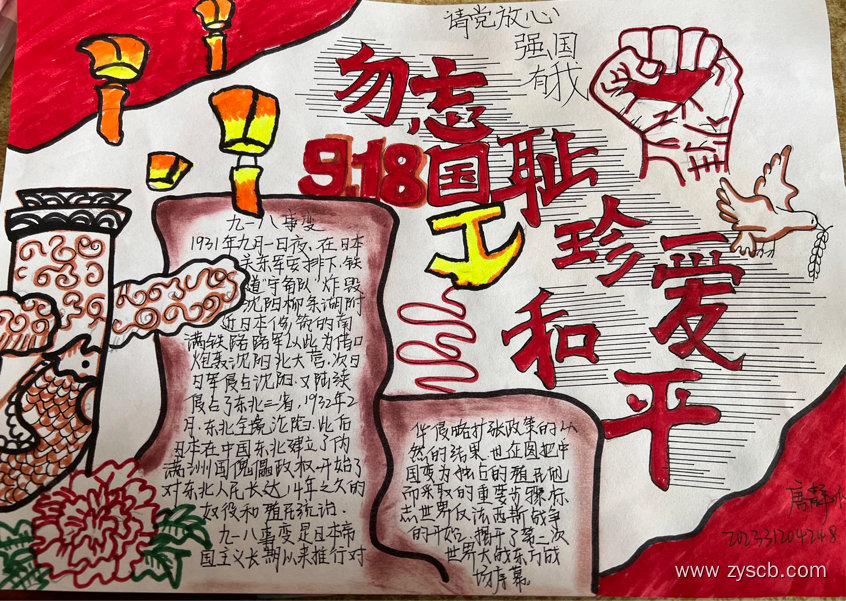 请党放心
强国
有我
勿忘
9.18国耻
珍爱
和平
九一八事变
1931年九月一日夜,在日本
关东军安排下,铁
道守备队炸毁
沈阳柳条湖附
近日本修筑的南
满铁路路军以此为借口
炮轰沈阳北大营,次日
日军侵占沈阳,又陆续
侵占了东北三省,1932年2
月,东北全境沦陷.此后
日本在中国东北建立了内
满洲国傀儡政权,开始了
对东北人民长达14年之久的
奴役和殖民统治.
九一八事变是日本帝
国主义长期以来推行对
华侵略扩张政策的必
然的结果,也企图把中
国变为独占的殖民地
而采取的重要步骤标
志世界反法西斯战争
的开始,揭开了第二次
世界大战东方战
场序幕
唐静
202331204248
www.zyscb.com